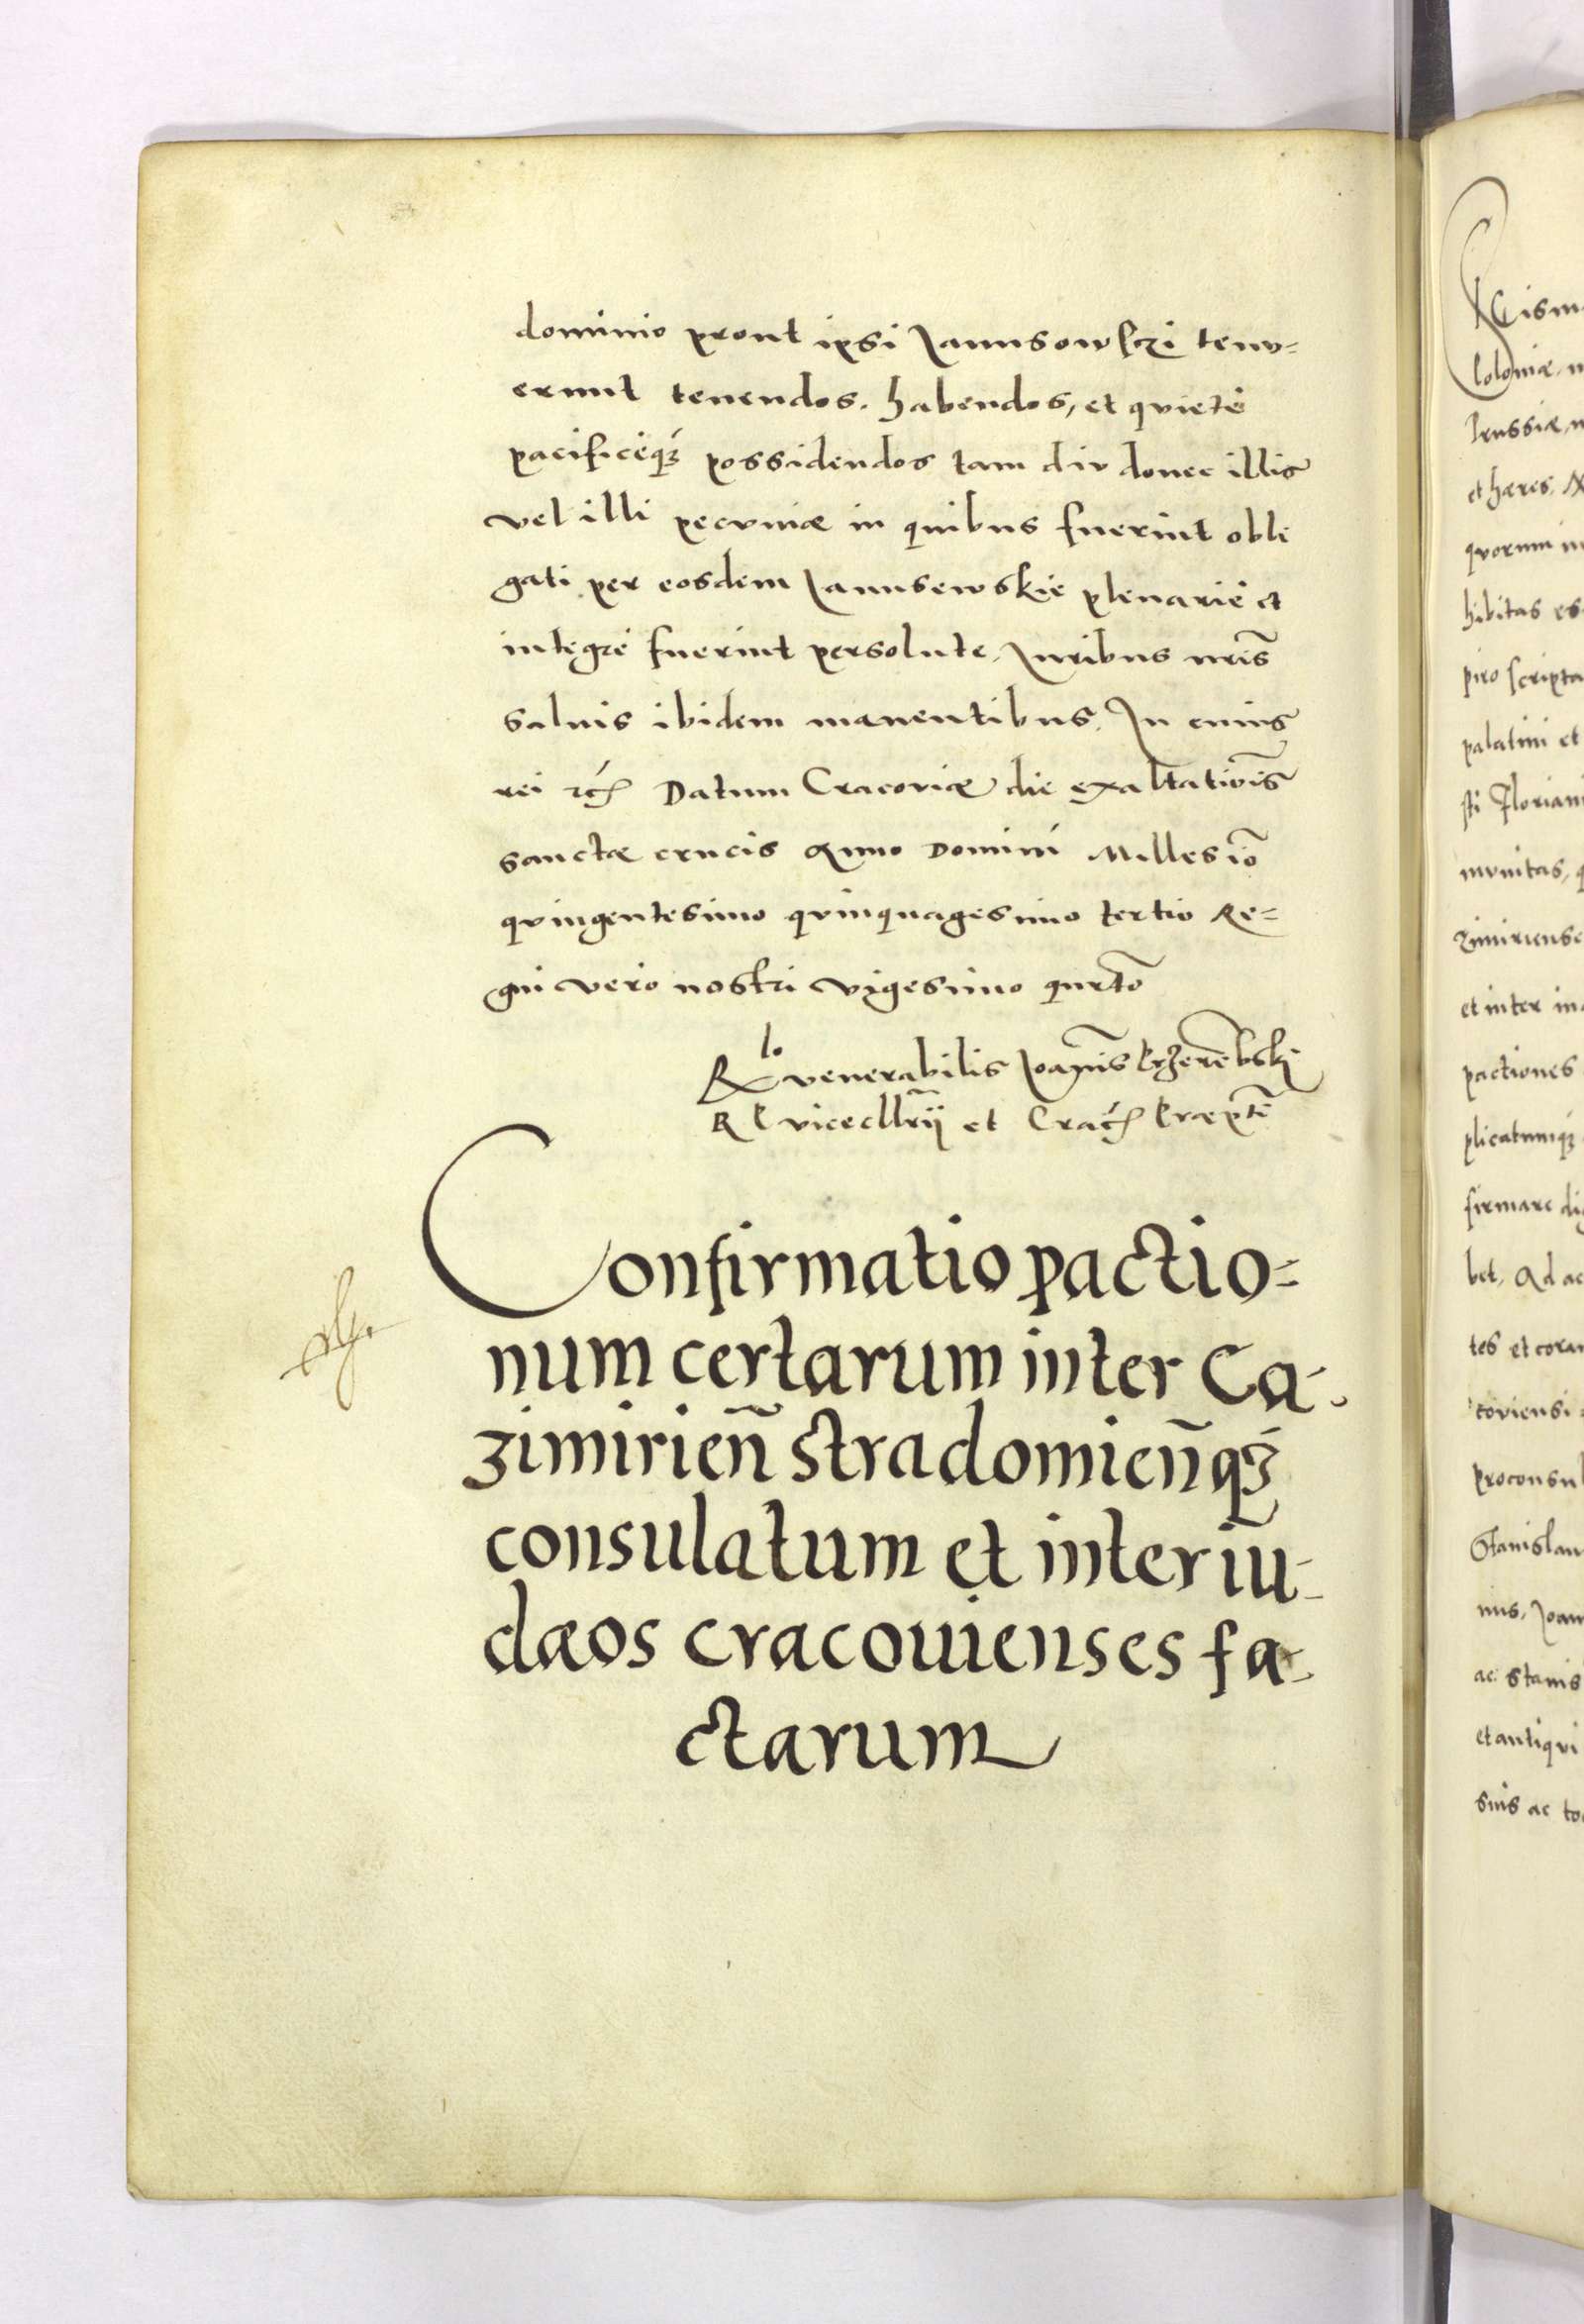 dominio prout ipsi Janusowsczi tenu=
erunt tenendos. habendos, et quietè
pacificeq́ꝫ possidendos tam diu donec illis
vel illi pecuniæ in quibus fuerint obli
gati per eosdem Janusewskie plenariè et
integrè fuerint persolute. Juribus nr̃is
saluis ibidem manentibus. In cuius
rei Datum Cracoviæ die exaltatiõis
sanctæ crucis Anno Domini Millesiõ
quingentesimo quinquagesimo tertio Re=
gni vero nostri vigesimo qurtõ
venerabilis Joãnis Przerẽbski
R P vicecllr̃ij et Crac̃
Confirmatio pactio=
num certarum inter Ca-
zimirieñ stradomieñq́ꝫ
consulatum et inter iu-
dæos cracouienses fa-
ctarum
loloniæ,
Prussiæ,
et hæres,
quorum
hibitas es
piro scripta
palatini et
sti Floriani
munitas,
zimiriense
et inter
pactiones
plicatumq́ꝫ
firmare
bet, Ad ac
tes et coram
coviensi
proconsul
Stanislau
nus, Joan
ac stanis
et antiqui
suis ac